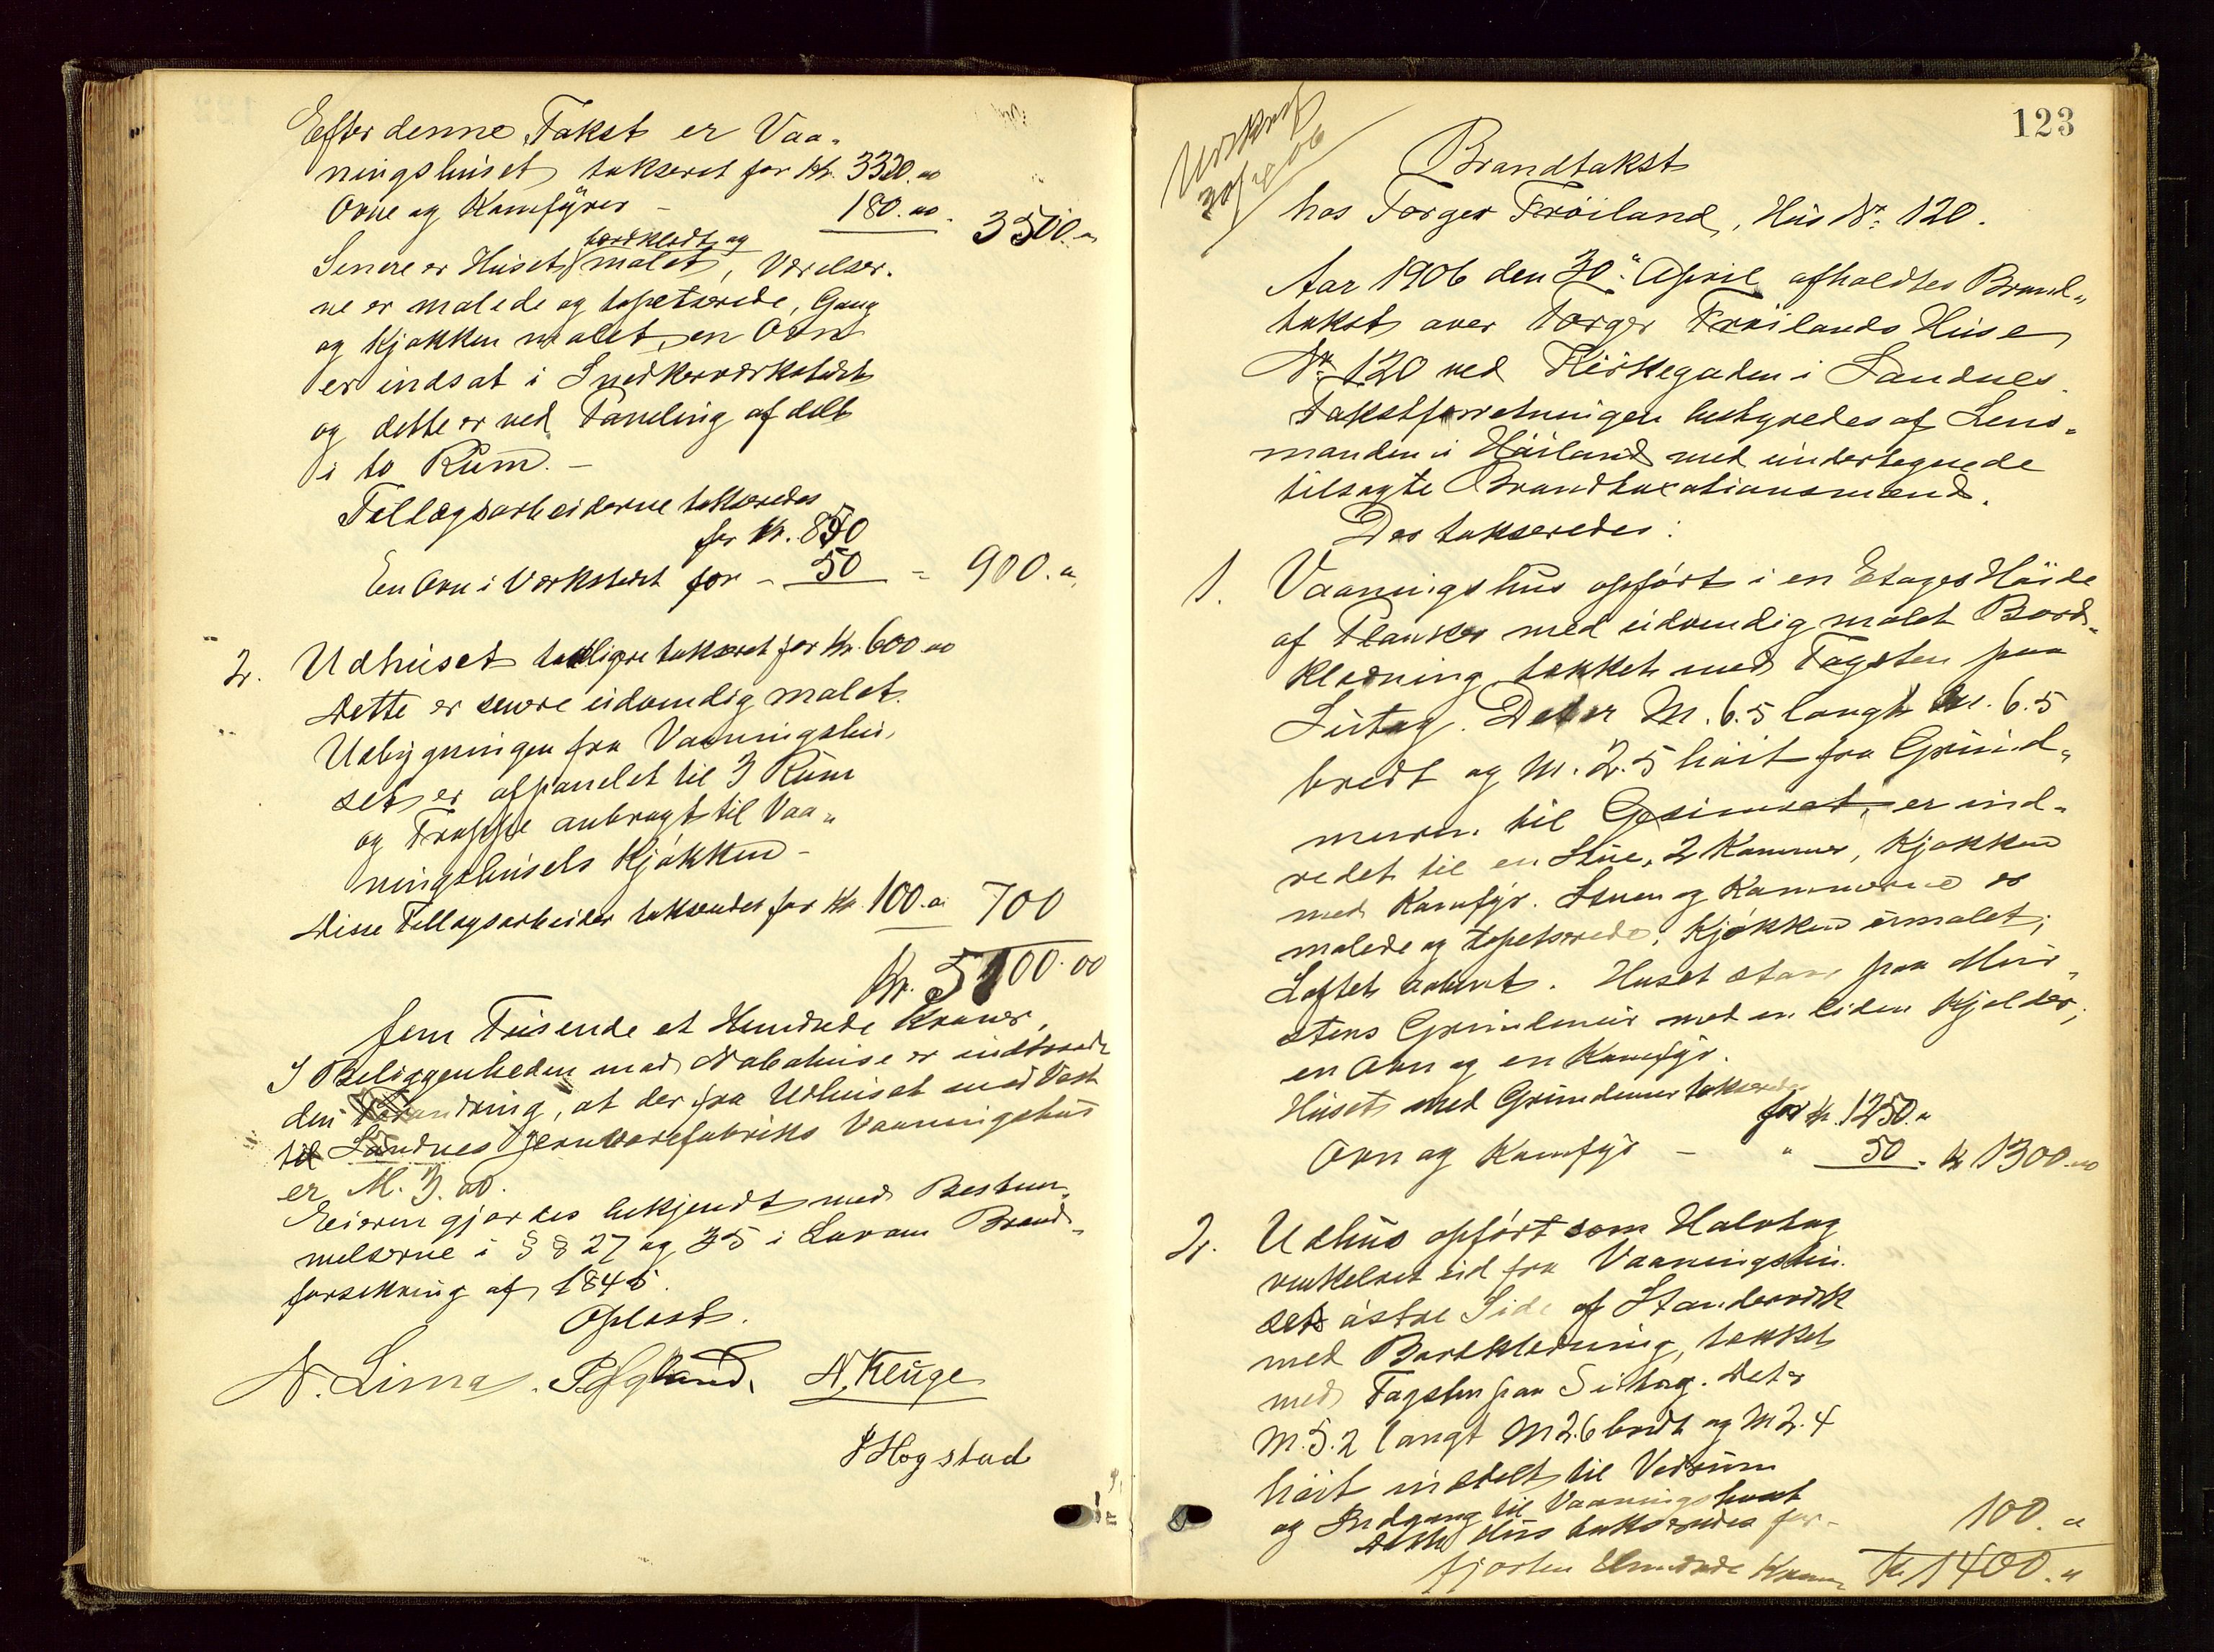 Efter denne Takst er Vaa-
ningshuset takseret for Kr. 3320.00
Ovne og Komfyrer – 180.00. 3500.00
bordklædt og
Senere er Huset malet, Værelser-
ne er malede og tapetserede, Gang
og Kjøkken malet, en Ovn
er indsat i Snedkerværkstedet
og dette er ved Paneling af delt
i to Rum. –
Tillægsarbeiderne takseredes
for Kr. 850
En Ovn i Værkstedet for – 50 – 900.00
2. Udhuset tidligere takseret for Kr. 600.00
Dette er senere udvendig malet.
Udbygningen fra Vaaningshu-
set er afpanelet til 3 Rum
og Trappe anbragt til Vaa-
ningshusets Kjøkken –
Disse Tillægsarbeider takseredes for Kr. 100.00 700
Kr. 5100.00
fem Tusende et Hundrede Kroner,
I Beliggenheden mod Nabohuse er indtraadt
den Forandring, at der fra Udhuset mod Vest
til Sandnes Jernvarefabriks Vaaningshus
er M. 3.00.
Eieren gjordes bekjendt med Bestem-
melserne i §§ 27 og 35 i Lov om Brand-
forsikring af 1845.
Oplæst.
N. Lima. N. Keüge
P Hogstad
123
30/4 06
Brandtakst
hos Torger Fröiland, Hus No. 120.
Aar 1906 den 30. April afholdtes Brand-
takst over Torger Fröilands Huse
No. 120 ved Kirkegaden i Sandnes.
Takstforretningen bestyredes af Lens-
manden i Höiland med undertegnede
tilsagte Brandtaxationsmænd.
Der takseredes:
1. Vaaningshus opfört i en Etages Höide
af Planker med udvendig malet Bord-
klædning, tækket med Tagsten paa
Sutag. Det er M. 6.5 langt M. 6.5
bredt og M. 2.5 höit fra Grund-
muren til Gesimset, er ind-
redet til en Stue, 2 Kammer, Kjøkken
med Komfyr. Stuen og Kammerne er
malede og tapetserede, Kjøkken umalet;
Loftet . Huset staar paa Mur-
stens Grundmur med en liden Kjælder;
en Ovn og en Komfyr.
Huset med Grundmur takseredes
for Kr. 1250.00
Ovn og Komfyr – " 50 – Kr 1300.00
2. Udhus opfört som Halvtag
vinkelret ud fra Vaaningshu-
sets östre Side af Standerværk
med Bordklædning, tækket
med Tagsten paa Sutag. Det er
M. 5.2 langt M 2.6 bredt og M 2.4
höit inddelt til Vedrum
og Indgang til Vaaningshuset
Dette Hus takseredes for – 100.00
fjorten Hundrede Kroner Kr. 1400.00